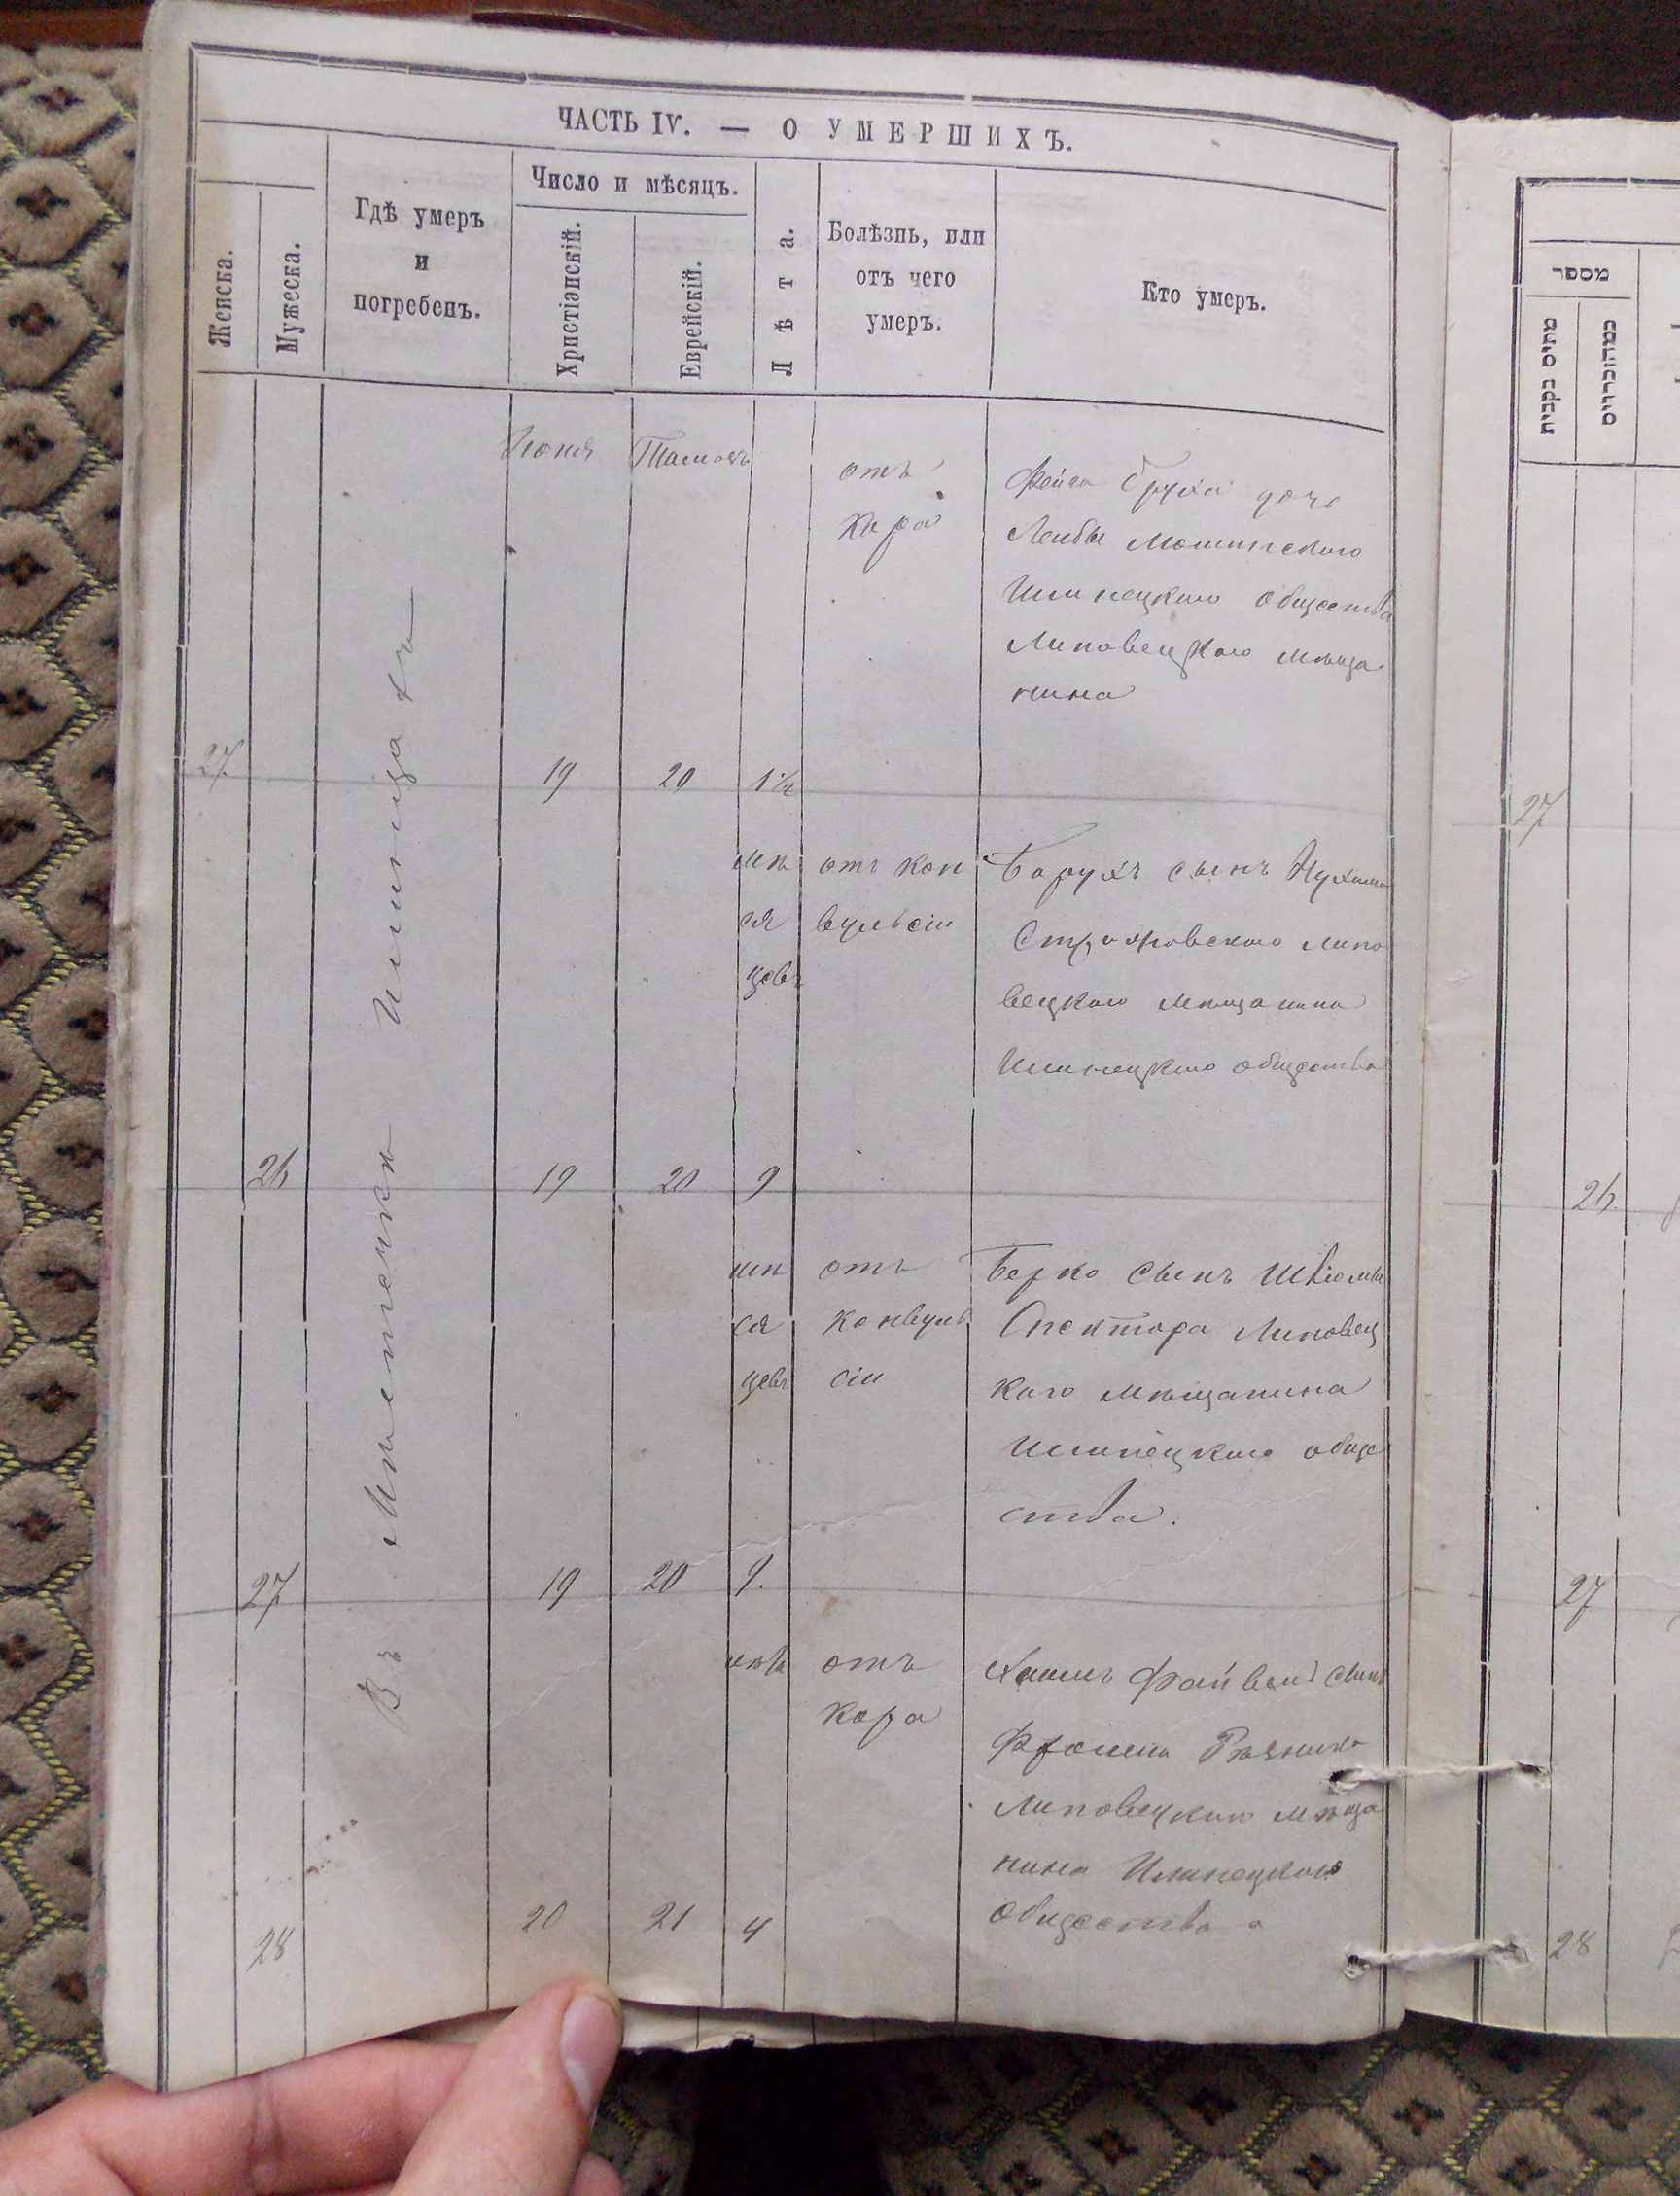 ЧАСТЬ IV. — О УМЕРШИХЪ.
Женска.
Мужеска.
Гдѣ умеръ
и
погребенъ.
Число и мѣсяцъ.
Христіанскій.
Еврейскій.
Лѣта.
Болѣзнь, или
отъ чего
умеръ.
Кто умеръ.
Въ Мѣстечкѣ Илинцахъ
Іюня
Тамозъ
отъ
кора
Фейга Бруха дочь
Лейбы
Илинецкого общества
Липовецкого мѣща
нина
27
19
20
1½
мѣ
ся
цевъ
отъ кон
вульсіи
Барухъ сынъ Нухима
Липо
вецкого мѣщанина
Илинецкого общества
26
19
20
9
мѣ
ся
цевъ
отъ
конвуль
сіи
Берко сынъ
Спектора Липовец
кого мѣщанина
Илинецкого обще
ства.
27
19
20
9.
лѣтъ
отъ
кора
Хаимъ Файвель сынъ
Фроима Рѣзника
Липовецкого мѣща
нина Илинецкого
общества
28
20
21
4
מספר
27
26.
27
28